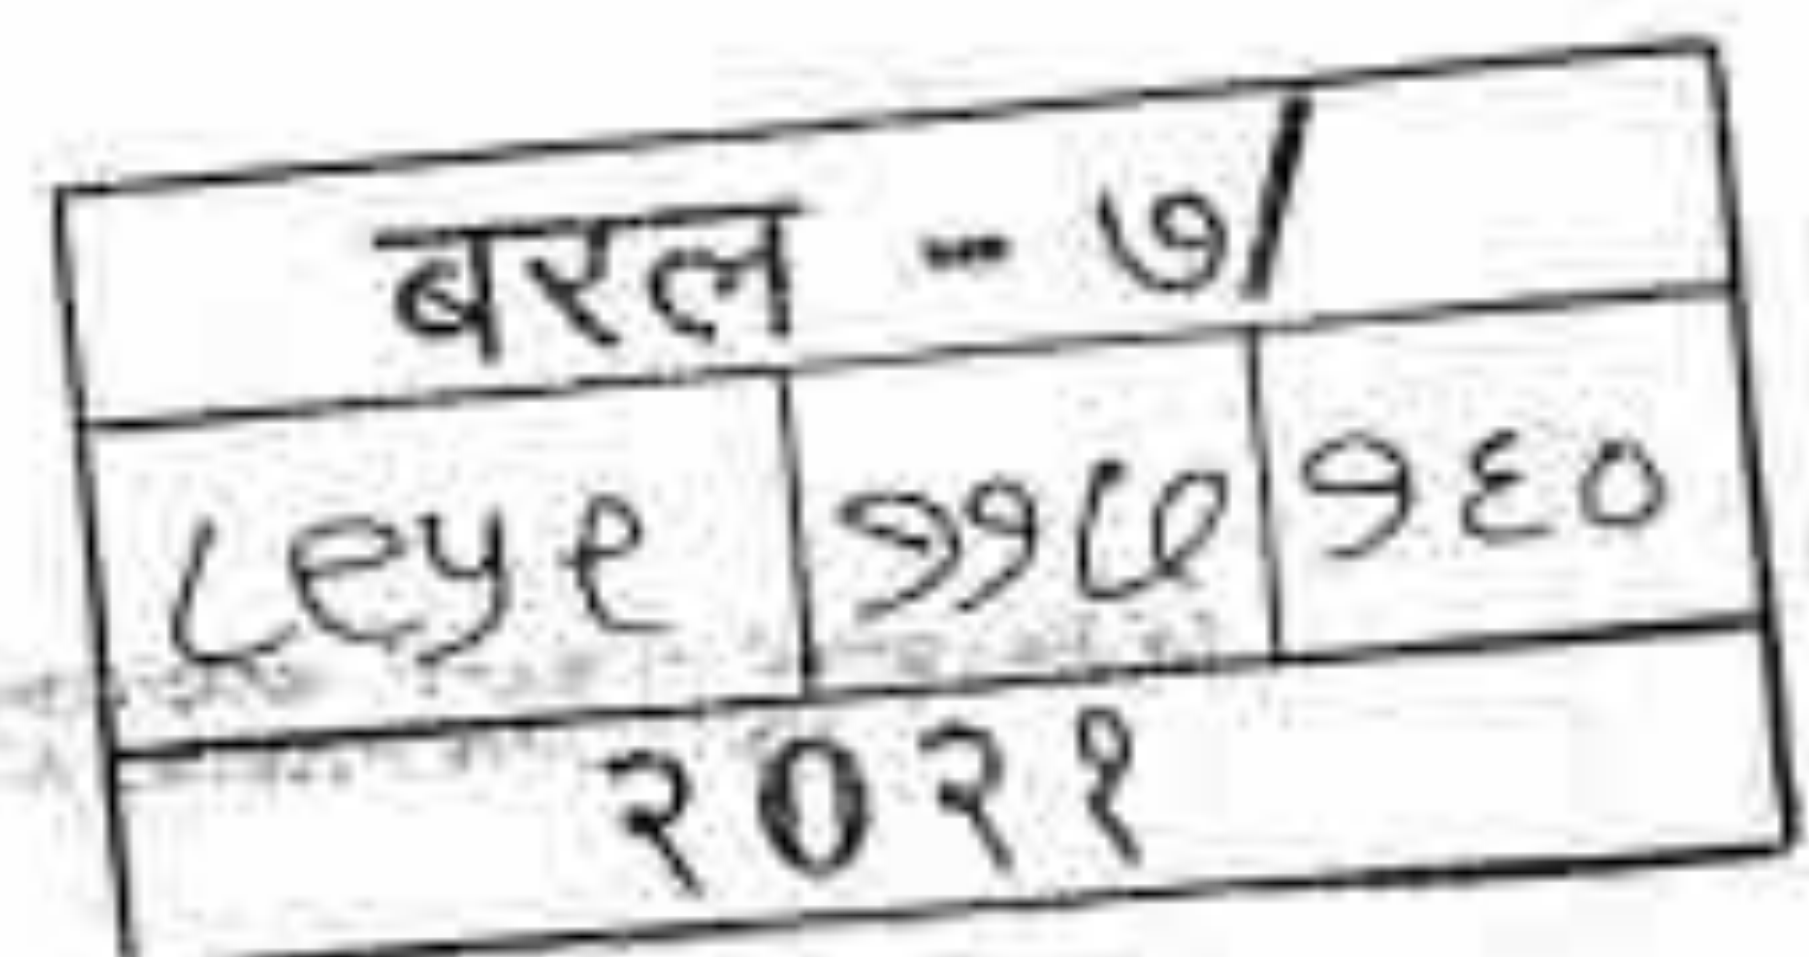 बरल - ७/
८९५९ ११७ १६०
२०२१